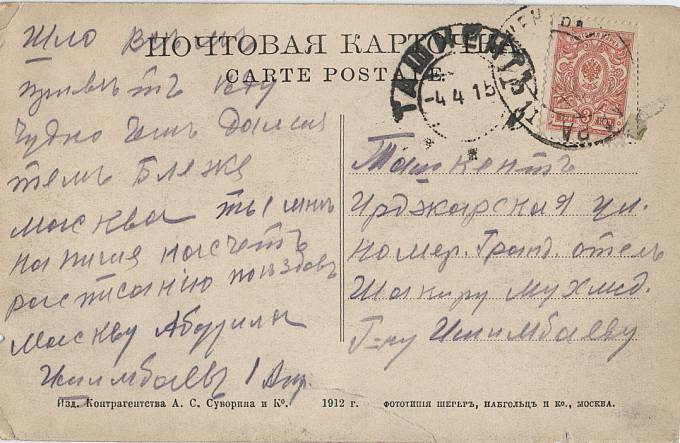 ПОЧТОВАЯ КАРТОЧКА
CARTE POSTALE
ТАШКЕНТЪ
-4.4.15
3 КОП.
Шло
приветъ
чудно чемъ дальше
темъ ближе
Москва ты мне
напиши насчетъ
расписанию поездовъ
Москву
Ишимбаевъ 1 Апр.
Ташкентъ
Ирджарская ул.
номер. Гранд. отель
Шакиру Мухмед.
Г-ну Ишимбаеву
Изд. Контрагентства А. С. Суворина и Кº. 1912 г. ФОТОТИПІЯ ШЕРЕРЪ, НАБГОЛЬЦЪ И КО., МОСКВА.